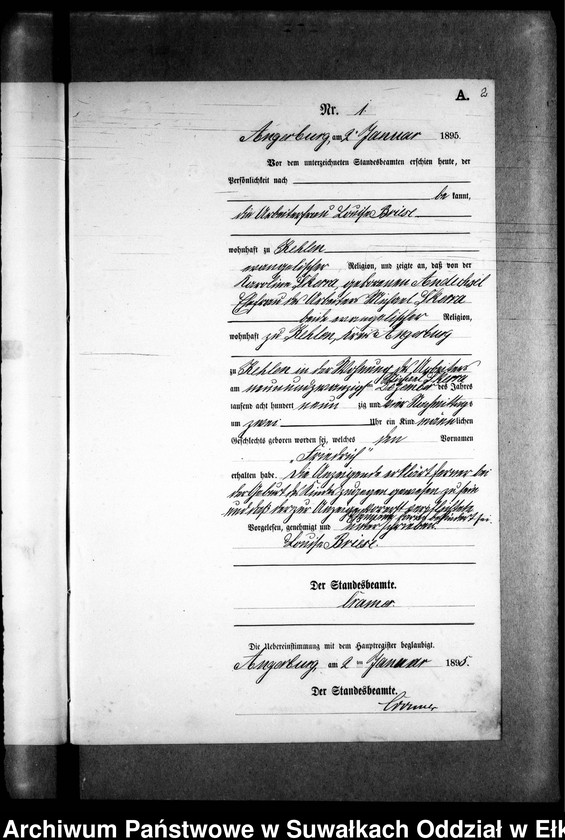 A. 2
Nr. 1.
Angerburg, am 2 Januar 1895.
Vor dem unterzeichneten Standesbeamten erschien heute, der
Persönlichkeit nach
be kannt,
die Arbeiterfrau Louise Briese
wohnhaft zu Kehlen
evangelischer Religion, und zeigte an, daß von der
Karoline Skerra, geborenen
Ehefrau des Arbeiters Michael Skerra
beide evangelischer Religion,
wohnhaft zu Kehlen, Kreis Angerburg
zu Kehlen in der Wohnung des Arbeiters
Michael Skerra
am neunundzwanzigsten Dezember des Jahres
tausend acht hundert neun zig und vier Nachmittags
um zwei Uhr ein Kind männlichen
Geschlechts geboren worden sei, welches den Vornamen
"Friedrich"
erhalten habe. Die Anzeigende erklärt ferner bei
der Geburt des Kindes zugegen gewesen zu sein
und daß der zur Anzeige verpflichtete
sei.
Vorgelesen, genehmigt und unterschrieben.
Louise Briese.
Der Standesbeamte.
Cramer.
Die Uebereinstimmung mit dem Hauptregister beglaubigt.
Angerburg, am 2 ten Januar 1895.
Der Standesbeamte.
Cramer
Archiwum Państwowe w Suwałkach Oddział w Ełk